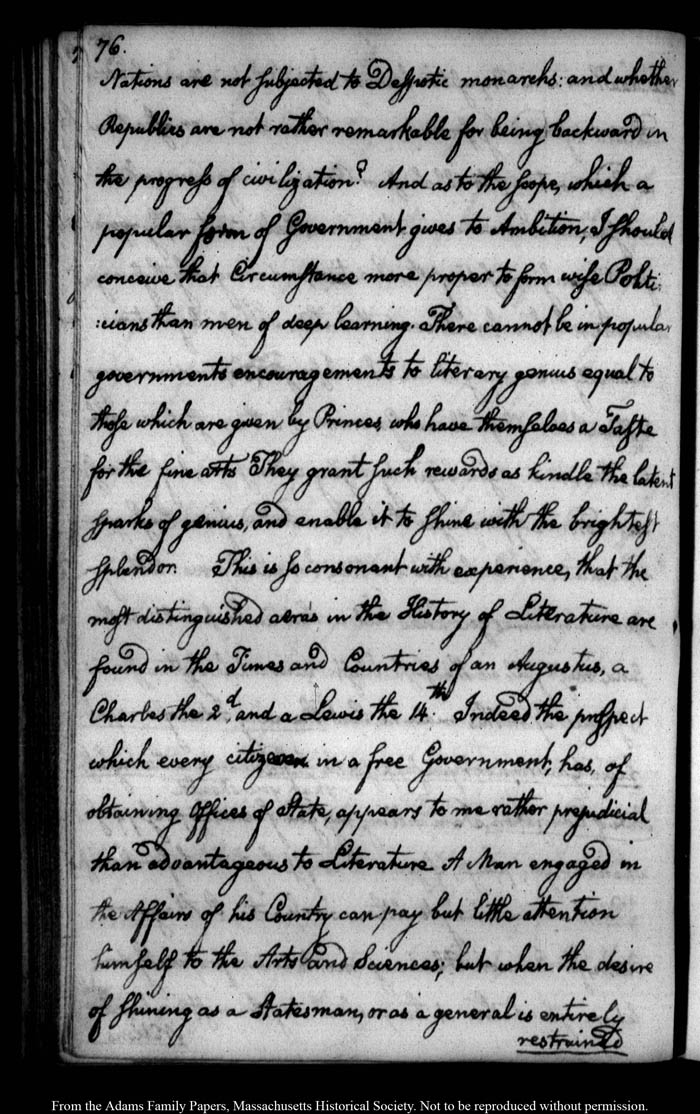 76.
Nations are not subjected to Despotic monarchs: and whether
Republics are not rather remarkable for being backward in
the progress of civilization? And as to the scope, which a
popular form of Government gives to Ambition, I should
conceive that Circumstance more proper to form wise Politi:
:cians than men of deep learning. There cannot be in popular
governments encouragements to literary genius equal to
those which are given by Princes, who have themselves a Taste
for the fine arts They grant such rewards as kindle the latent
sparks of genius, and enable it to shine with the brightest
splendor. This is so consonant with experience, that the
most distinguished aera's in the History of Literature are
found in the Times and Countries of an Augustus, a
Charles the 2d, and a Lewis the 14th. Indeed the prospect
which every citizen in a free Government, has, of
obtaining Offices of State, appears to me rather prejudicial
than advantageous to Literature A Man engaged in
the Affairs of his Country can pay but little attention
himself to the Arts and Sciences; but when the desire
of shining as a Statesman, or as a general is entirely
restrained
From the Adams Family Papers, Massachusetts Historical Society. Not to be reproduced without permission.